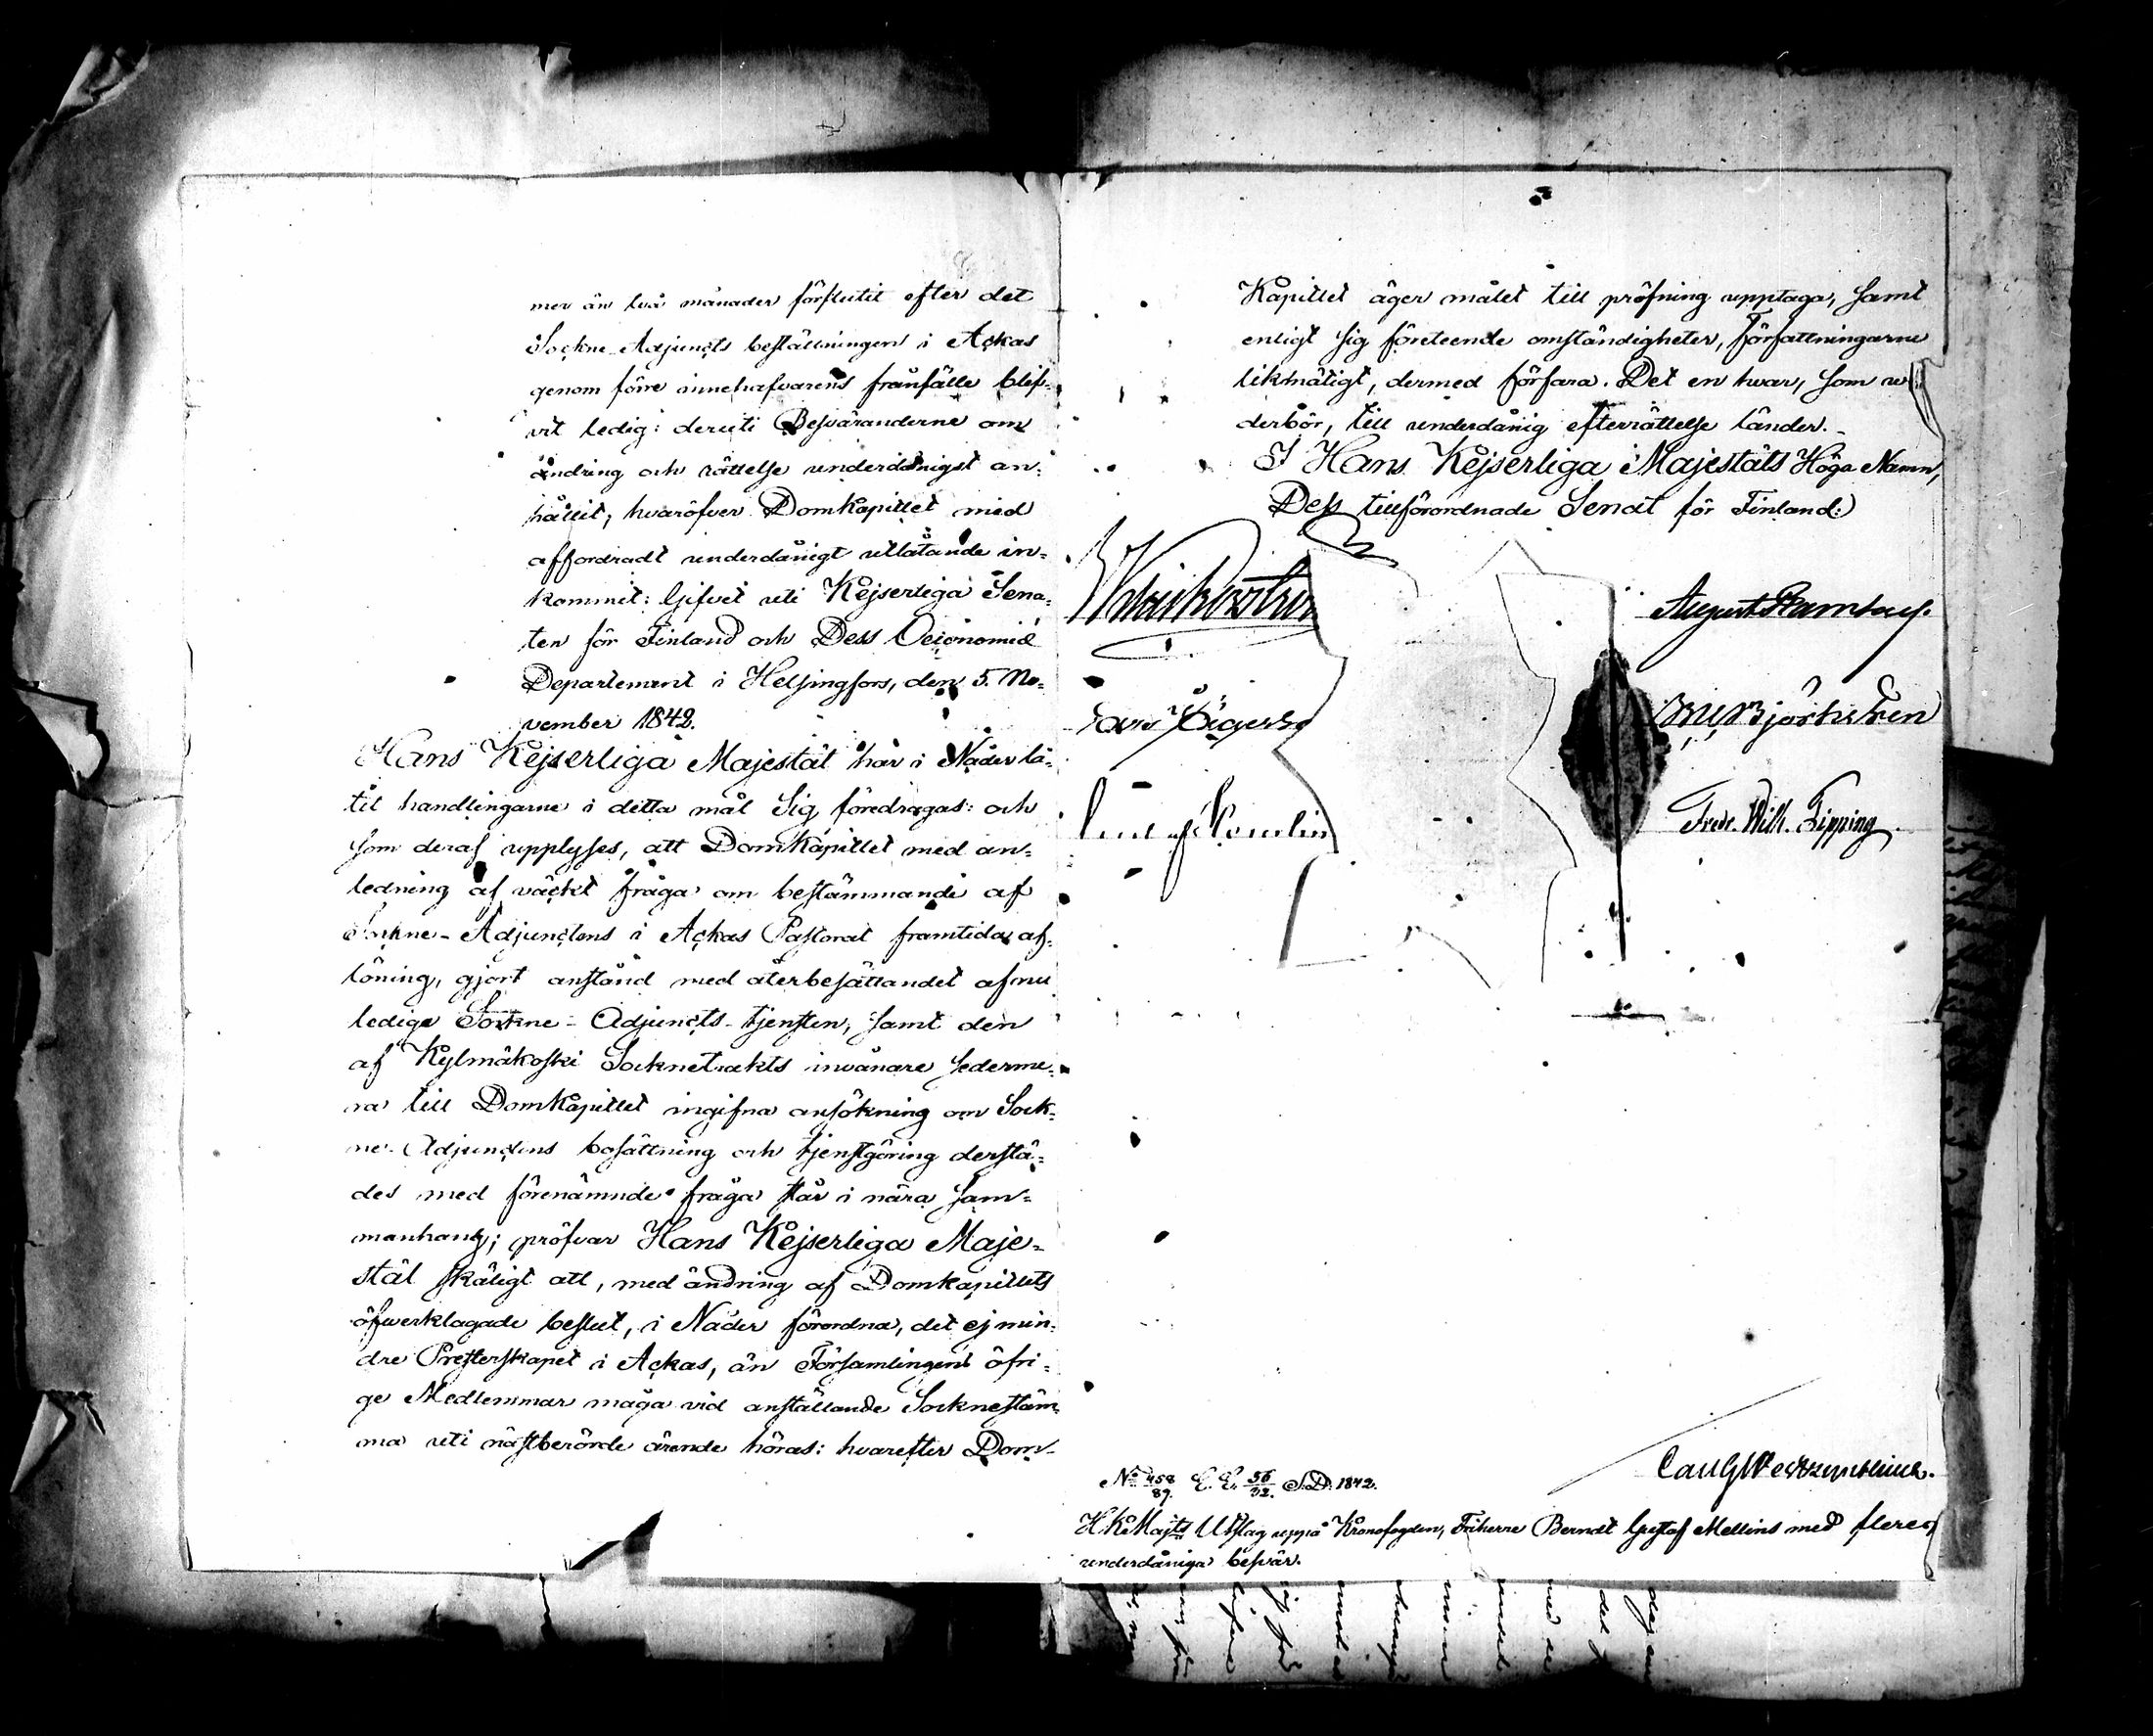 mer än två månader förflutit efter det
Sockne-Adjuncts beställningen i Ackas
genom förre innehafvarens frånfälle blif-
vit ledig: deruti Besväranderne om
ändring och rättelse underdånigst an-
hållit; hvaröfver Domkapitlet med
affordradt underdånigt utlåtande in-
kommit: Gifvet uti Kejserliga Sena-
ten för Finland och Dess Oeconomie
Departement i Helsingfors, den 5. No-
vember 1842.
Hans Kejserliga Majestät har i Nåder lå-
tit handlingarne i detta mål Sig föredragas: och
som deraf upplyses, att Domkapitlet med an-
ledning af väckt fråga om bestämmande af
Sockne-Adjunctens i Ackas Pastorat framtida af-
löning, gjort anstånd med återbesättandet af nu
lediga Sockne-Adjuncts-tjensten, samt den
af Kylmäkoski Socknetrakts invånare sederme-
ra till Domkapitlet ingifna ansökning om Sock-
ne-Adjunctens bosättning och tjenstgöring derstä-
des med förenämnde fråga står i nära sam-
manhang; pröfvar Hans Kejserliga Maje-
stät skäligt att, med ändring af Domkapitlets
öfwerklagade beslut, i Nåder förordna, det ej min-
dre Presterskapet i Ackas, än Församlingens öfri-
ge Medlemmar måga vid anställande Socknestäm-
ma uti nästberörde ärende höras: hvarefter Dom-
Kapitlet äger målet till pröfning upptaga, samt
enligt sig företeende omständigheter, Författningarne
likmätigt, dermed förfara. Det en hwar, som ve-
derbör, till underdånig efterrättelse länder.
I Hans Kejserliga Majestäts Höga Namn,
Dess tillförordnade Senat för Finland:
August Ramsay.
Björksten
Fredr. Wilh. Pipping
No 458/89. E. E. 56/32. S.D. 1842.
H K Majts Utslag uppå Kronofogden, Friherre Berndt Gustaf Mellins med fleres
underdåniga besvär.